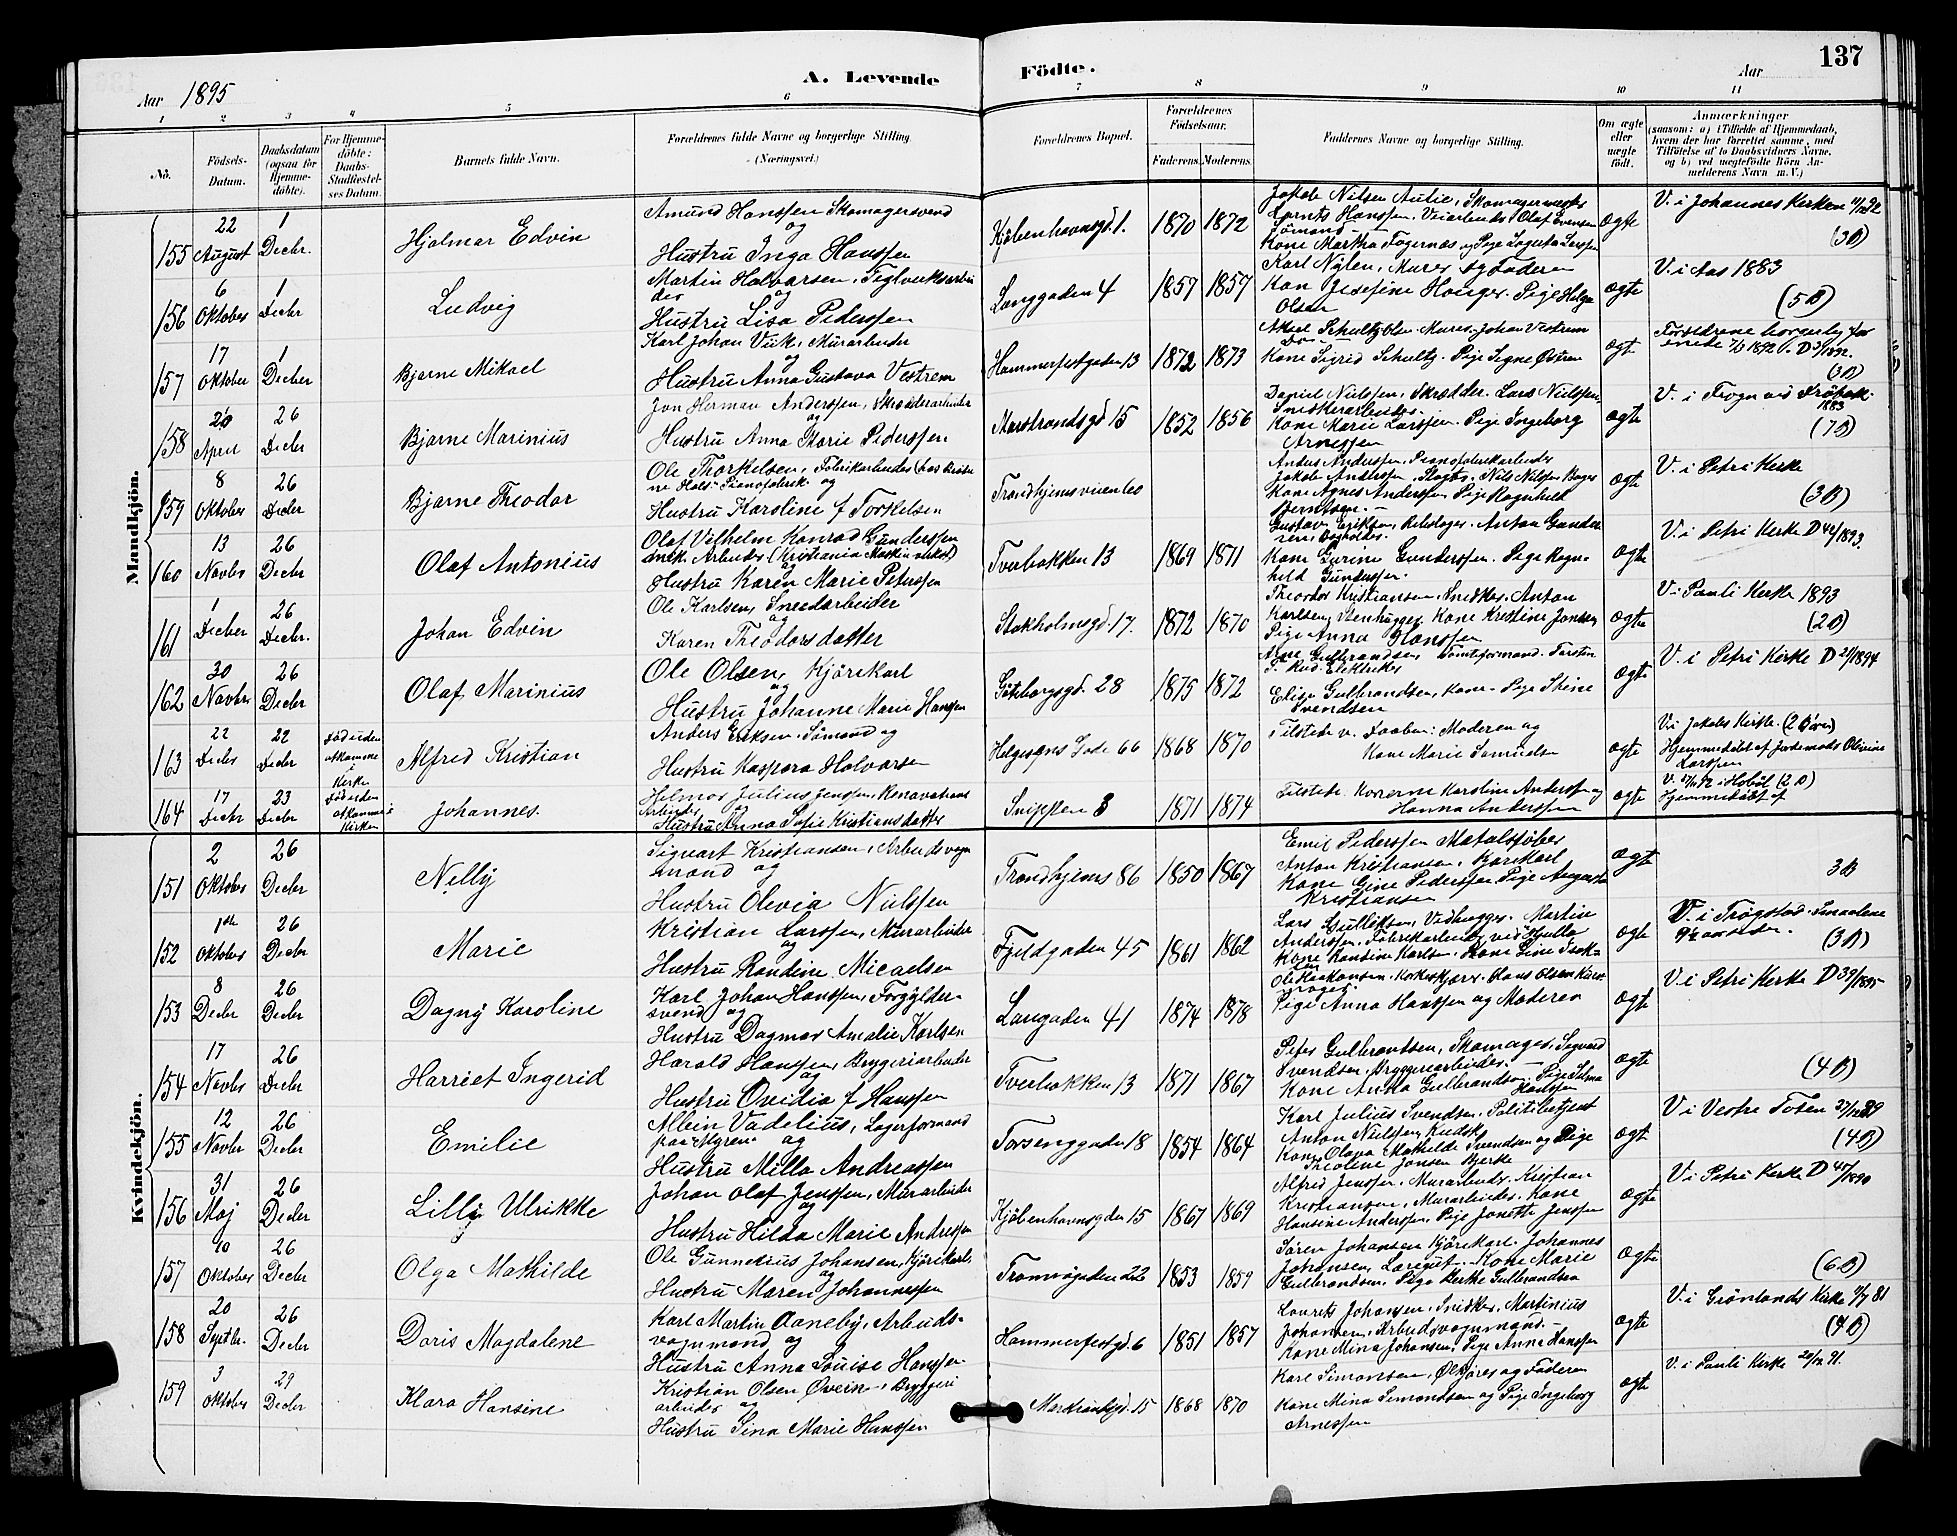 137
A. Levende Födte.
Aar 1895
Aar
1 2 3 4 5 6 7 8 9 10 11
No.
Fødsels-Datum.
Daabsdatum (ogsaa for Hjemme-døbte).
For Hjemme-døbte: Daabs-Stadfæstel-ses Datum.
Barnets fulde Navn.
Forældrenes fulde Navne og borgerlige Stilling. (Næringsvei.)
Forældrenes Bopæl.
Forældrenes Fødselsaar.
Faderens. Moderens.
Faddernes Navne og borgerlige Stilling.
Om ægte eller uægte født.
Anmærkninger
(saasom: a) i Tilfælde af Hjemmedaab, hvem der har forrettet samme, med Tilføielse af to Daabsvidners Navne, og b) ved uægtefødte Børn An-melderens Navn m. V.)
Mandkjön.
155 22 August 1 Decbr. Hjalmar Edvin
Amund Hanssen Skomagersvend og Hustru Inga Hanssen
Kjøbenhavnsgd. 1. 1870 1872
Jakob Nilsen Aulie, Skomagermester
Hanssen, Olaf Evensen Sømand
Kone Martha Fagernæs og Pige Larssen
ægte
V. i Johannes Kirken 11/12 92 (3B)
156 6 Oktober 1 Decbr Ludvig
Martin Halvorsen, Teglverksarbei der og Hustru Lisa Pederssen
Langgaden 4 1857 1857
Karl Nylen, Murer og Faderen
Kone Josefine Hauger. Pige Helga Olsen
ægte
V. i Aas 1883 (5B)
157 17 Oktober 1 Decber Bjarne Mikael
Karl Johan Viik, Murarbeider og Hustru Anna Gustava Vestrem
Hammerfestgaden 13 1872 1873
Schultz, Murer. Johan Vestrem
Kone Sigrid Schultz. Pige Signe
ægte
Forældrene borgerlig (3B)
158 20 April 26 Decbr Bjarne Marinius
Jon Herman Anderssen, Skrædderarbeider og Hustru Anna Marie Pederssen
Marstrandsgd 15 1852 1856
Daniel Nielssen, Skrædder. Lars Nielssen, Snedkerarbeider.
Kone Marie Larssen. Pige Ingeborg Arnessen
ægte
V. i Frogn ved Drøbak 1883 (7B)
159 8 Oktober 26 Decbr Bjarne Theodor
Ole Thorkelsen, Fabrikarbeider (hos Brødre ne Hals' Pianofabrik og Hustru Karoline f Torkelsen
Trondhjemsveien 60
Anders Anderssen, Pianofabrikarbeider
Jakob Anderssen, Nils Nilsen Bager
Kone Agnes Anderssen Pige Ragnhild Berntsen. -
ægte
V. i Petri Kirke (3B)
160 13 Novbr 26 Decbr Olaf Antonius
Olaf Vilhelm Konrad Gunderssen mek. Arbeider (Kristiania Mask in verkst) og Hustru Karen Marie Peterssen
Tverbakken 13 1869 1871
Gustav Eriksen, Rebslager. Anton Gunders sen, Bogholder.
Kone Gurine Gunderssen. Pige Ragn-hild Gunderssen.
ægte
V. i Petri Kirke D 44/1893.
161 1 Decber 26 Decbr. Johan Edvin
Ole Karlsen, Smedarbeider og Karen Theodorsdatter
Stokholmsgd. 17. 1872 1870
Theodor Kristiansen, Snedker. Anton Karlsen, Stenhugger. Kone Kristine Jonsen
Pige Anna Hanssen
ægte
V. i Pauli Kirke 1893 (2B)
162 30 Novbr 26 Decbr Olaf Marinius
Ole Olsen, Kjørekarl og Hustru Johanne Marie Hanssen
Gøteborgsgd. 28 1875 1872
Arne Gulbrandsen, Tomteformand. Torsten T. Rud.
Elise Gulbrandsen, Kone - Pige Stine Svendsen
ægte
V. i Petri Kirke D 21/1894
163 22 Decbr 22 Decbr Død uden at komme i Kirke Alfred Kristian
Anders Eriksen, Sømand og Hustru Kaspara Halvorsen
Helgesens Gade 66 1868 1870
Tilstede v. Daaben: Moderen og Kone Marie Samuelsen
ægte
V. i Jakobs Kirke. (2 Børn)
Hjemmedøbt af Jordemoder Olivine Larssen
164 17 Decbr 23 Decbr Død uden at komme i Kirken Johannes.
Hilmar Julius Jenssen, Renovations Arbeider og Hustru Anna Sofie Kristiansdatter
Snippen 3 1871 1874
Tilstede Konerne Karoline Anderssen og Hanna Anderssen
ægte
i Hobøl (2B) Hjemmedøbt af
Kvindekjön.
151 2 Oktober 26 Decbr Nelly
Sigvart Kristiansen, Arbeidsvogn mand og Hustru Olevia Nielssen
Trondhjems 86 1850 1867
Emil Pederssen Metalstøber
Anton Kristiansen, Kjørekarl
Kone Gine Pederssen, Pige Augusta Kristiansen
ægte
3B
152 1ste Oktober 26 Decbr Marie
Kristian Larssen, Murarbeider og Hustru Randine Micaelsen
Fjeldgaden 45 1861 1862
Lars Gulliksen, Vedhugger. Martin Anderssen, Fabrikarbeider ved Hjula
Kone Randine Karlsen. Kone Line Isak-sen
ægte
V. i Trøgstad Smaalene 9½ aar siden. (3B)
153 8 Decbr 26 Decbr Dagny Karoline
Karl Johan Hanssen, Forgylder-svend og Hustru Dagmar Amalie Karlsen
Langaden 41 1874 1878
Ole Haakonsen, Korkskjærer. Hans Olsen
Pige Anna Hanssen og Moderen
ægte
V. i Petri Kirke D 39/1895
154 17 Novbr 26 Decbr Harriet Ingerid
Harald Hanssen, Bryggeriarbeider og Hustru Ovidia f Hanssen
Tverbakken 13 1871 1867
Peter Gulbrantsen, Skomager. Sigvard Svendsen, Bryggeriarbeider. -
Kone Anna Gulbrandsen. Pige Selma Hanssen
ægte
(4B)
155 12 Novbr 26 Decbr Emilie
Albin Vadelius, Lagerformand paa Myren og Hustru Milla Andreassen
Torsenggaden 18 1854 1864
Karl Julius Svendsen, Politibetjent
Anton Nielssen, Kudsk
Kone Olava Mathilde Svendsen og Pige Theoline Jonsen Bjerke
ægte
V i Vestre Toten 27/12 89 (4B)
156 31 Maj 26 Decbr Lilly Ulrikke
Johan Olaf Jenssen, Murarbeider og Hustru Hilda Marie Andressen
Kjøbenhavnsgden 15 1867 1869
Alfred Jenssen, Murarbeider. Kristian Kristiansen, Murarbeider. Kone Hansine Anderssen, Pige Jonette Jenssen
ægte
V. i Petri Kirke D 45/1890
157 10 Oktober 26 Decbr Olga Mathilde
Ole Gunnelius Johansen, Kjørekarl og Hustru Maren Johannessen
Tromsøgaden 22 1853 1859
Søren Johansen Kjørekarl. Johannes Johansen, Larsgut. Kone Marie Gulbrandsen. Pige Berthe Gulbrandsen
ægte
(6B)
158 20 Septbr. 26 Decbr Doris Magdalene
Karl Martin Aaneby, Arbeids-vognmand og Hustru Anna Louise Hanssen
Hammerfestgd. 6 1851 1857
Laurits Johansen, Snidker, Martinius Johansen, Arbeidsvognmand. -
Kone Mina Johansen, Pige Anne Hanssen
ægte
V. i Grønlands Kirke 81 (4B)
159 3 Oktober 29 Decbr Klara Hansine
Kristian Olsen Øveren, Bryggeri arbeider og Hustru Sina Marie Hanssen
Marstrandsgd. 15 1868 1870
Karl Simonsen, Ølkjører og Faderen
Kone Mina Simondsen og Pige Ingeborg Arnessen
ægte
V. i Pauli Kirke 20/12 91.